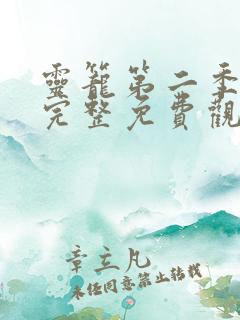 靈籠第二季
完整免費觀
章立凡
未经同意禁止转载